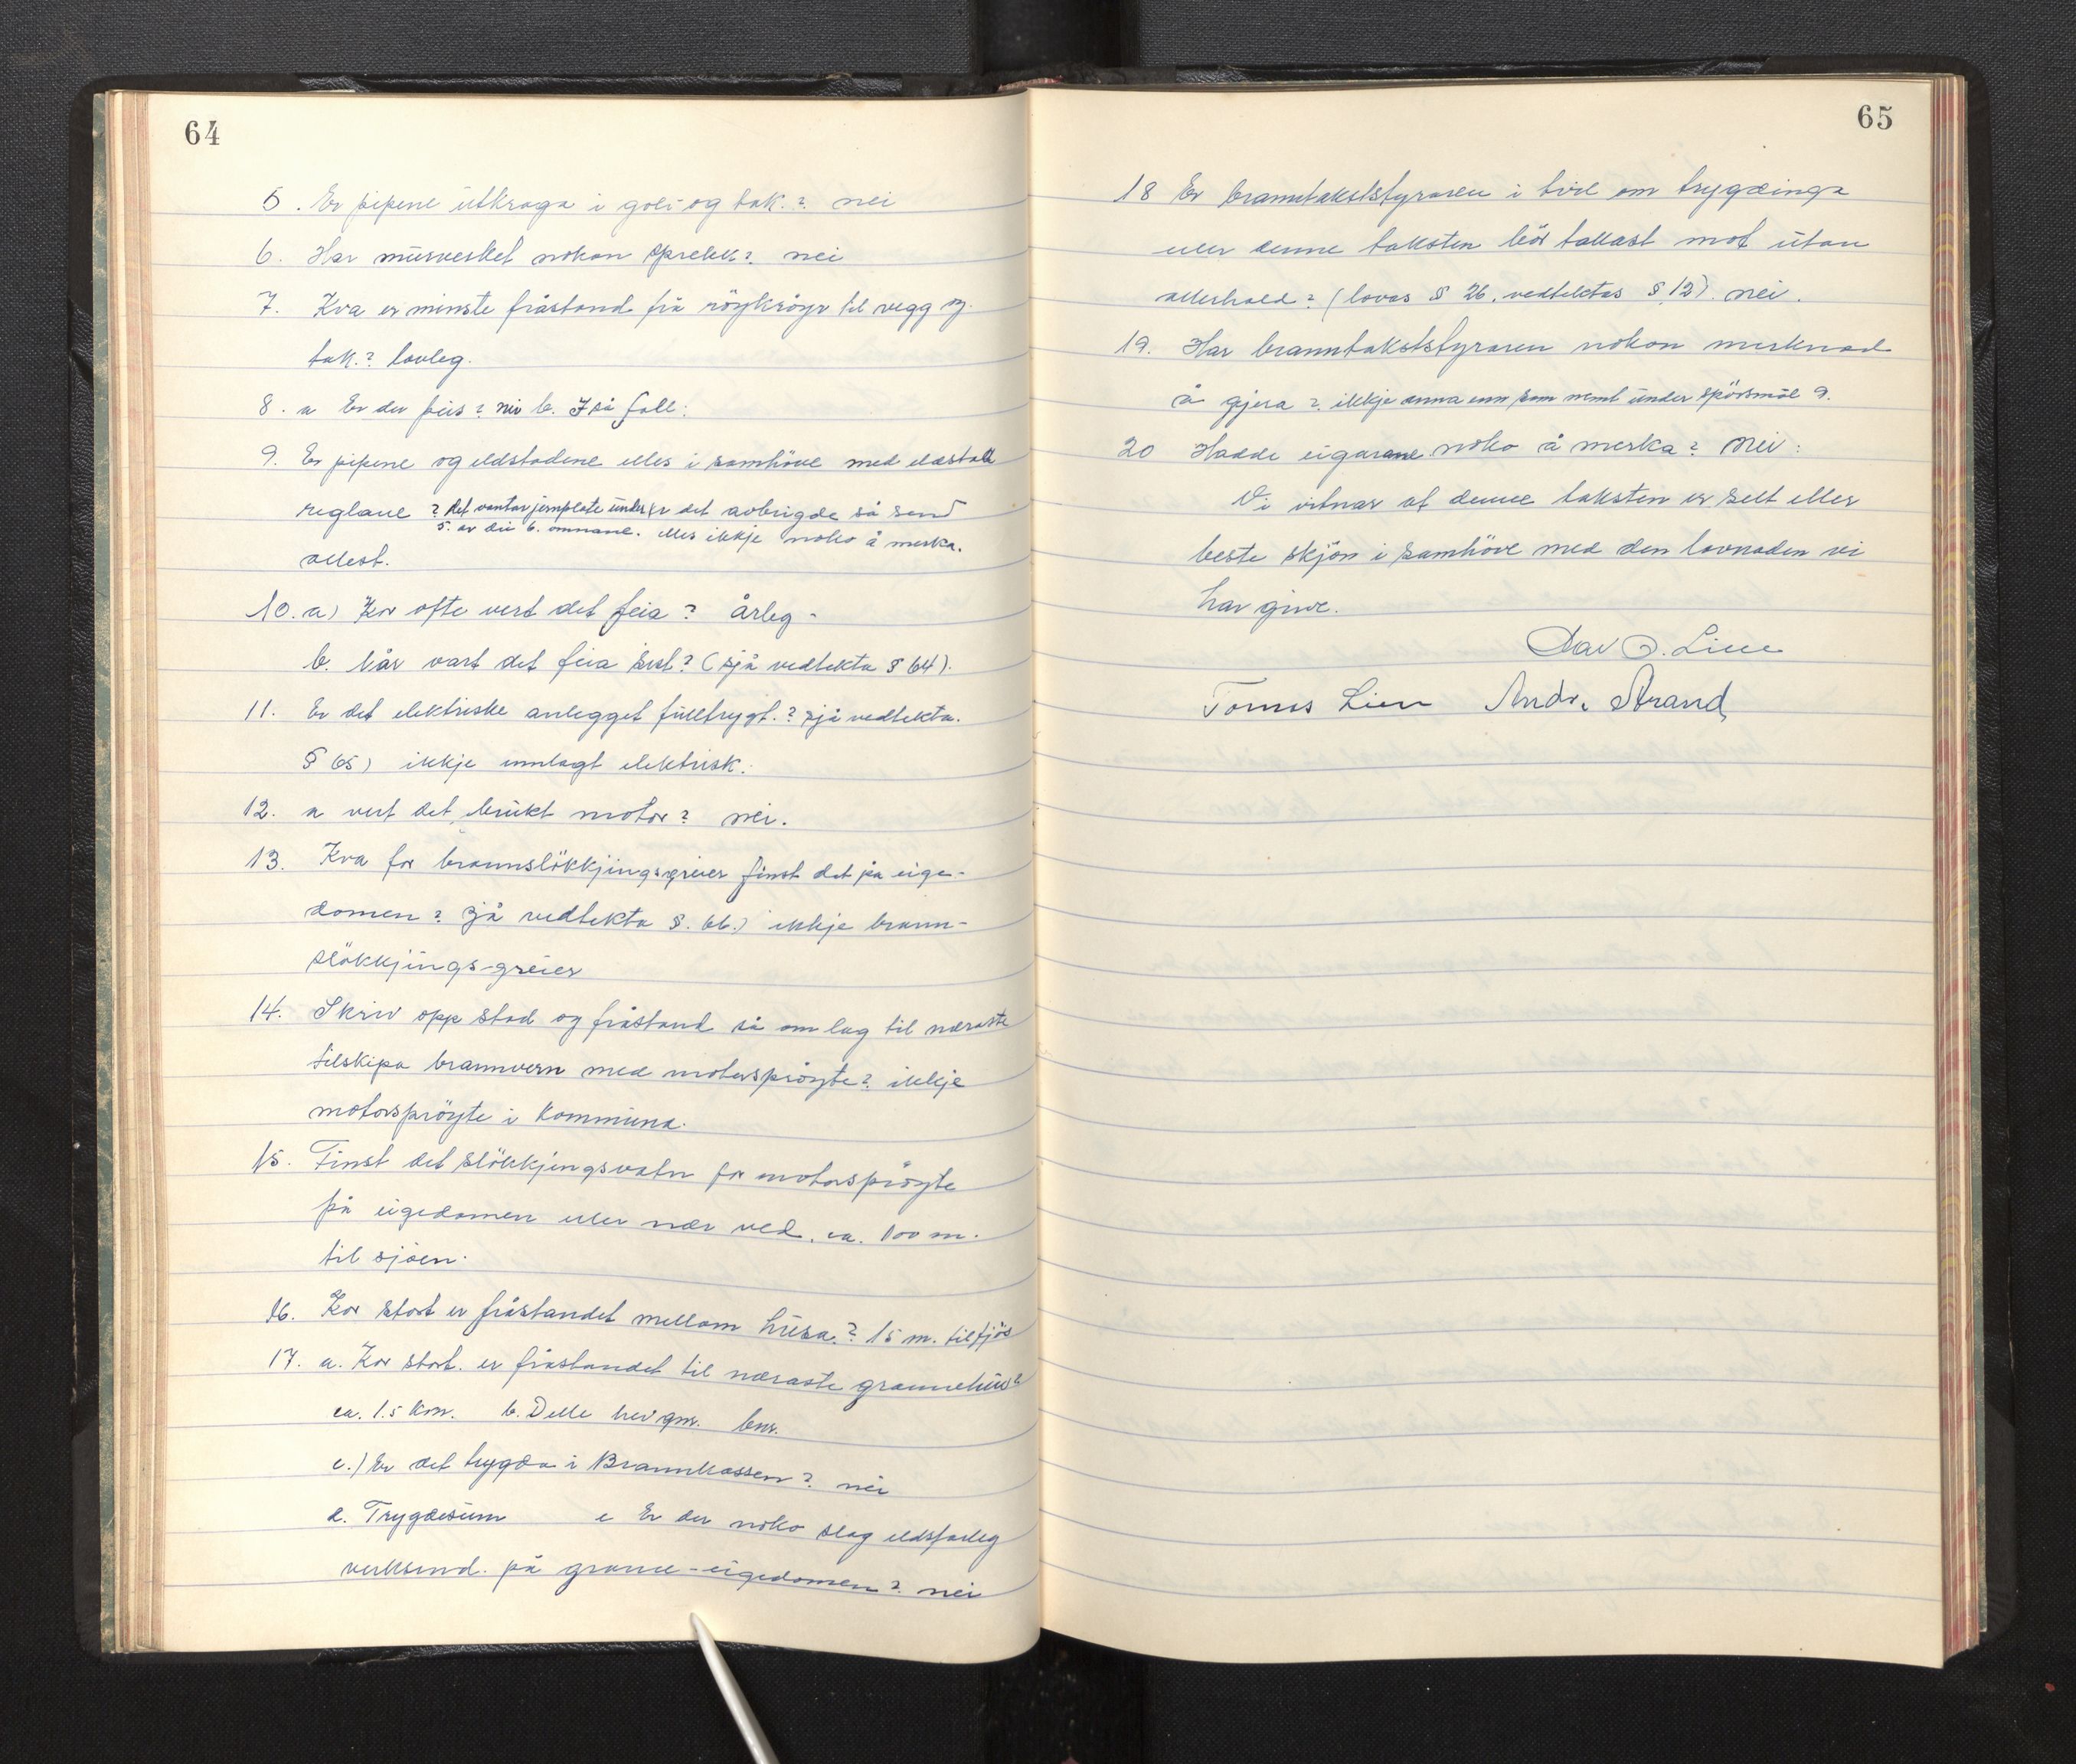 64
5. Er pipene utkraga i golv og tak.? nei
6. Har murverket nokon sprekk? nei
7. Kva er minste fråstand frå röykröyr til vegg og
tak.? lovleg.
8. a Er der peis? nei b. I så fall:
9. Er pipene og eldstadene elles i samhöve med eldstad
reglane? det vantar jernplate under er det avbrigde så send
5. av dei 6. omnane. elles ikkje noko å merka.
attest.
10. a) Kor ofte vert det feia? årleg -
b. Når vart det feia sist? (sjå vedtekta § 64).
11. Er det elektriske anlegget fulltrygt.? sjå vedtekta.
§ 65) ikkje innlagt elektrisk.
12. a vert det brukt motor? nei.
13. Kva for brannslökkjingsgreier finst det på eige-
domen? sjå vedtekta §. 66.) ikkje brann-
slökkjings-greier
14. Skriv opp stad og fråstand så om lag til næraste
tilskipa brannvern med motorspröyte? ikkje
motorspröyte i kommuna.
15. Finst det slökkjingsvatn for motorspröyte
på eigedomen eller nær ved. ca. 100 m.
til sjöen.
16. Kor stort er fråstandet mellom husa.? 15 m. til fjös
17. a. Kor stort. er fråstandet til næraste grannehus?
ca. 1.5 km. b. Dette hev gnr. bnr.
c.) Er det trygda i Brannkassen? nei
d. Trygdesum e Er der noko slag eldsfarleg
verksemd. på granne-eigedomen? nei
65
18 Er branntakststyraren i tvil om trygdinga
eller denne taksten bör takast mot utan
atterhald? (lovas § 26, vedtektas § 12). nei.
19. Har branntakststyraren nokon merknad
å gjera? ikkje anna enn som nemt under spörsmål 9.
20 Hadde eigarane noko å merka? Nei:
Vi vitnar at denne taksten er sett etter
beste skjön i samhöve med den lovnaden vi
har gjeve.
O. Lien
Tomas Lien Andr. Strand